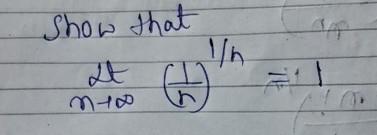 Show that
Lt n→∞ (1/n)^1/n = 1